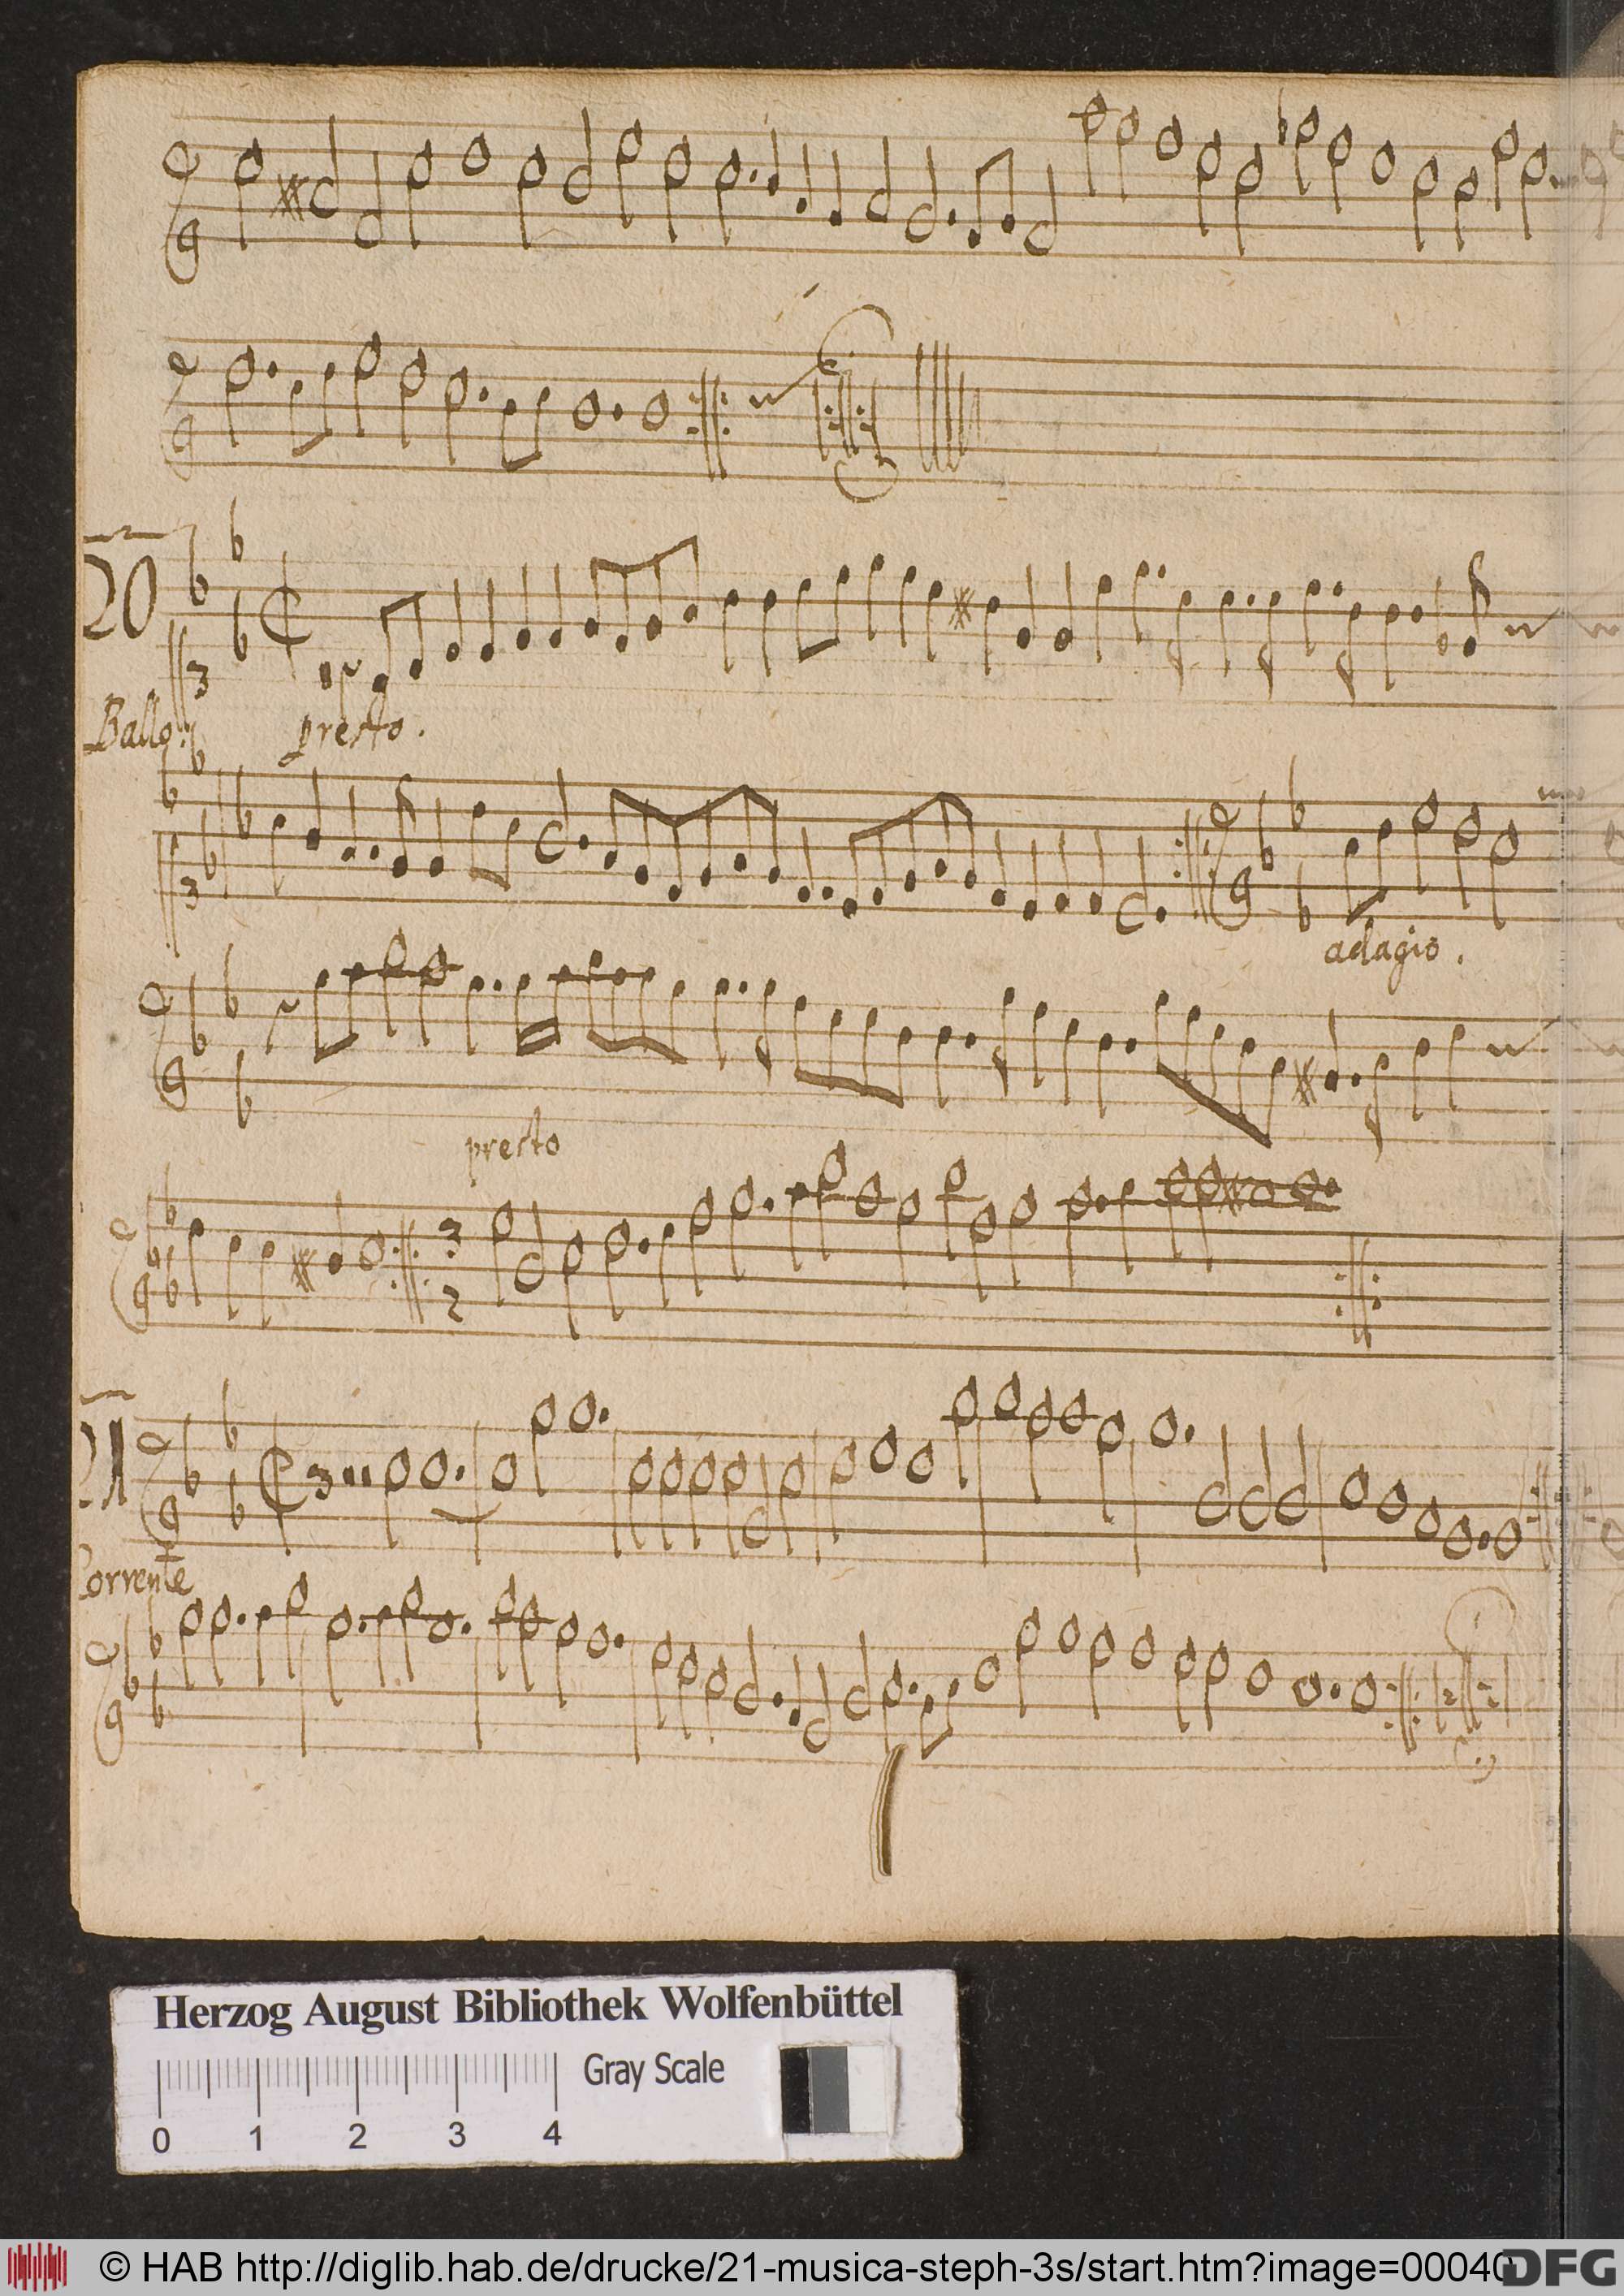 20
Ballo:
presto.
adagio.
presto
3
2
21
3
Corrente
Herzog August Bibliothek Wolfenbüttel
Gray Scale
0 1 2 3 4
© HAB http://diglib.hab.de/drucke/21-musica-steph-3s/start.htm?image=00040
DFG